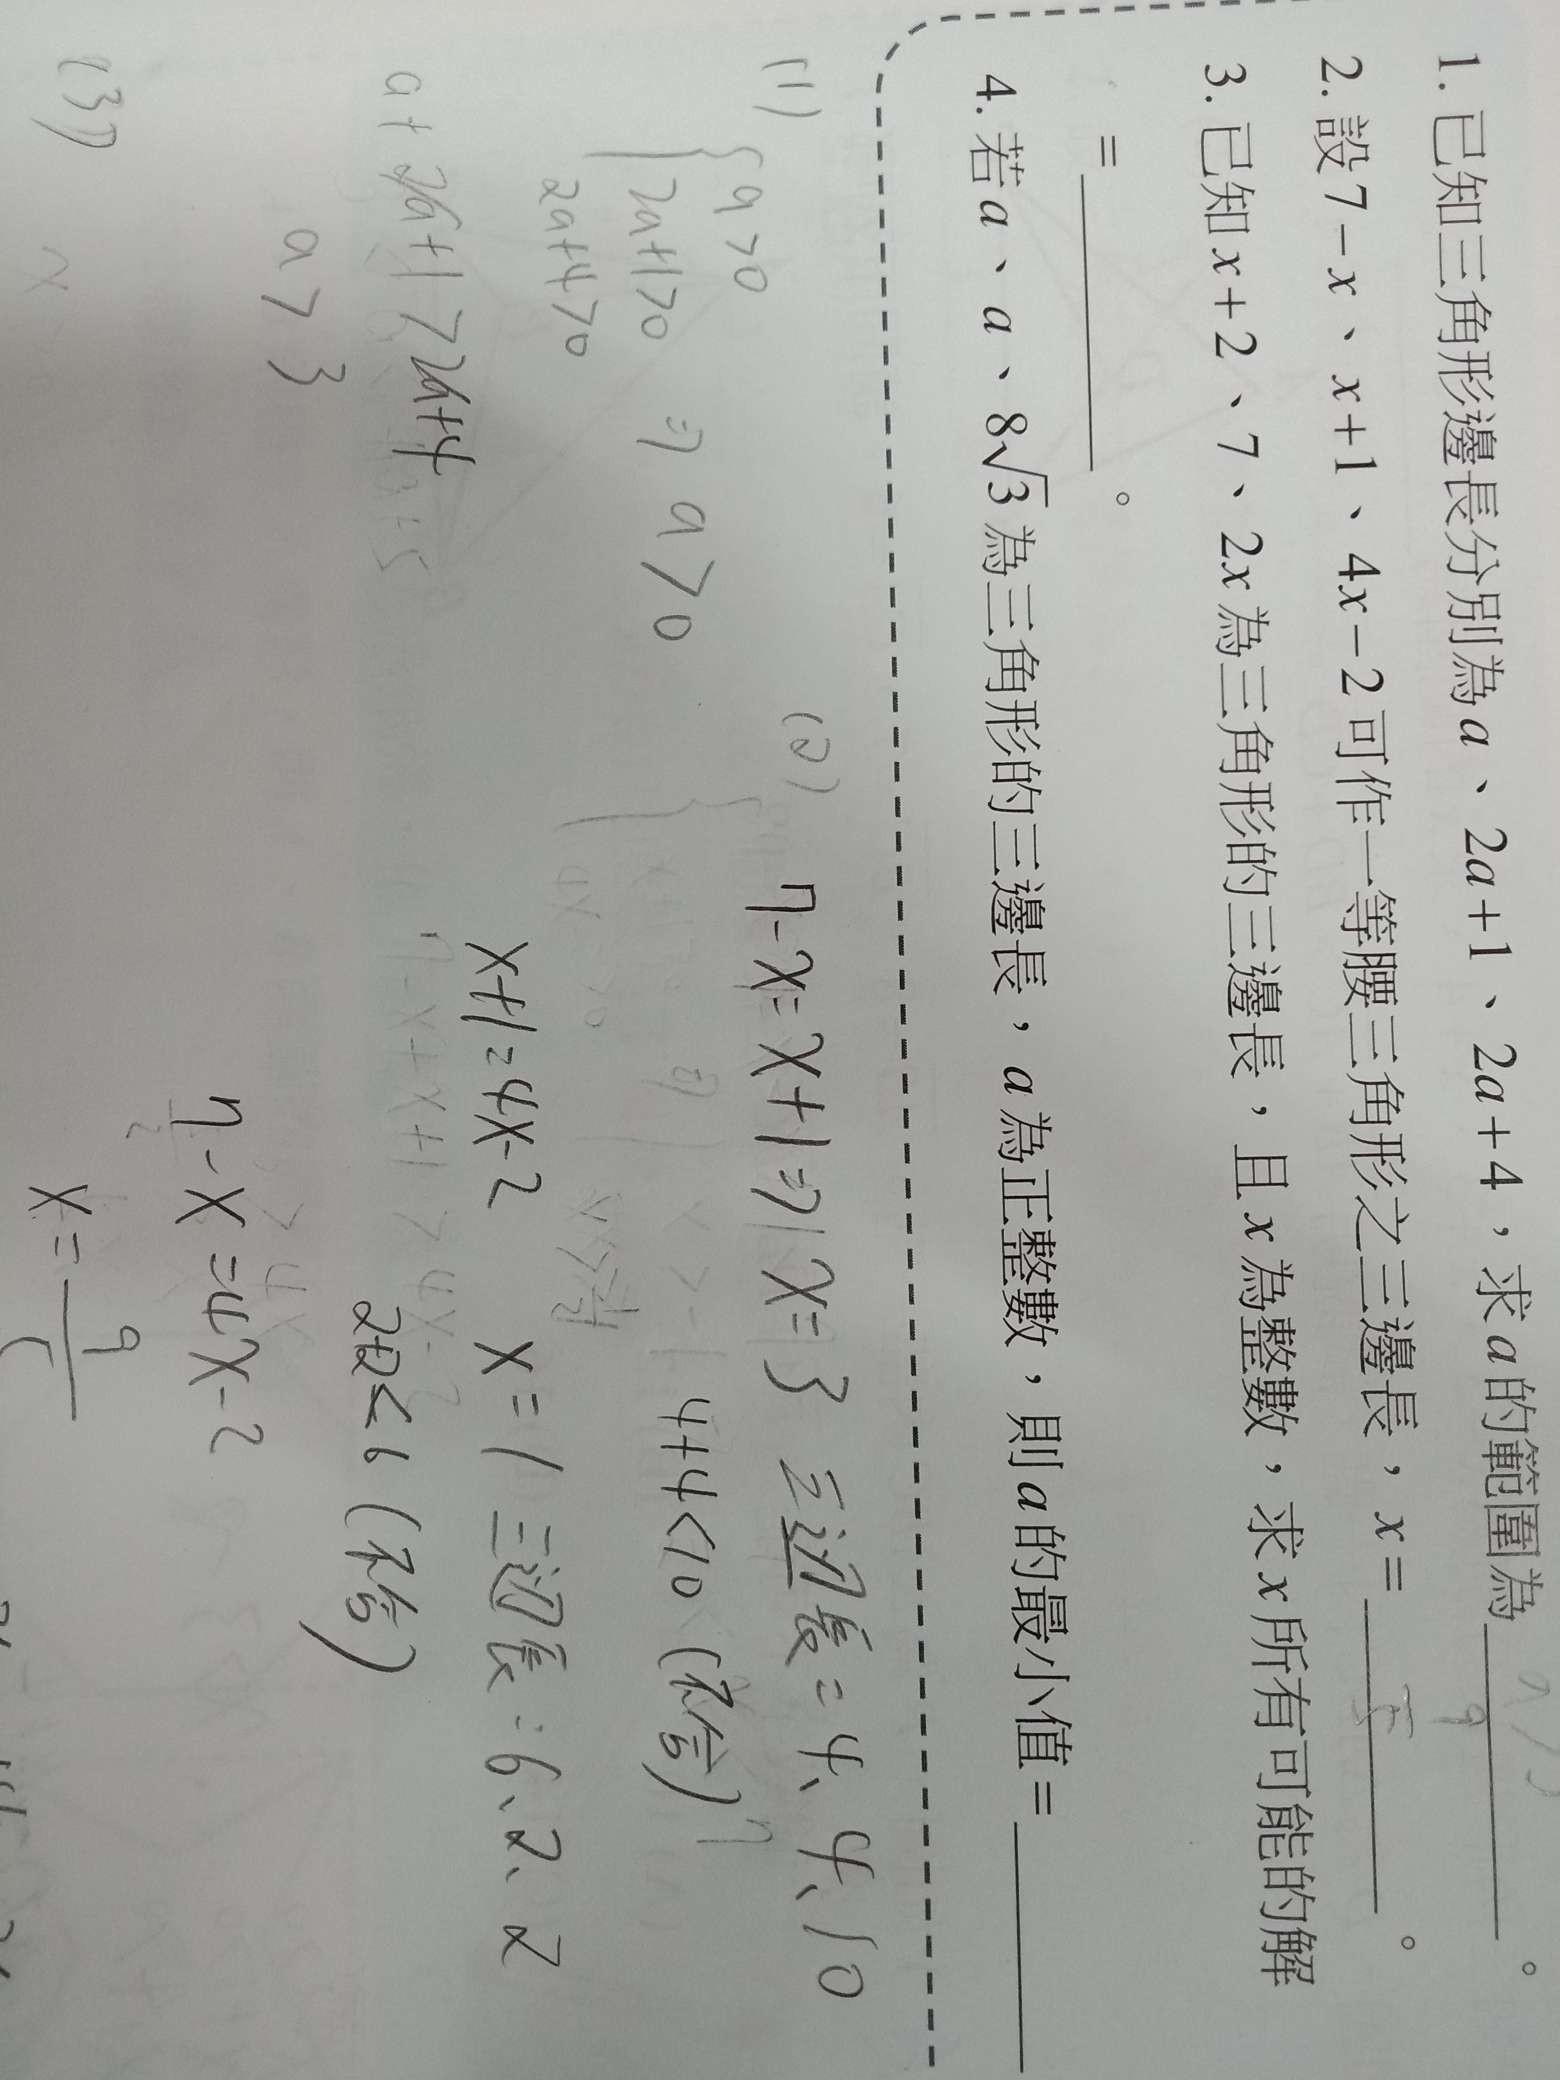 1. 已知三角形邊長分別為a、2a+1、2a+4，求a的範圍為________。
2. 設7-x、x+1、4x-2可作一等腰三角形之三邊長，x=________。
3. 已知x+2、7、2x為三角形的三邊長，且x為整數，求x所有可能的解
=________。
4. 若a、a、8√3為三角形的三邊長，a為正整數，則a的最小值=________
(1)
{a>0
2a+1>0 => a>0
2a+4>0
a+2a+1>2a+4
a>3
(2)
7-x=x+1=> x=3 三边長=4、4、10
4+4<10 (不合)
x+1=4x-2 x=1 三边長:6、2、2
2+2<6 (不合)
7-x=4x-2
x=9/5
(3)